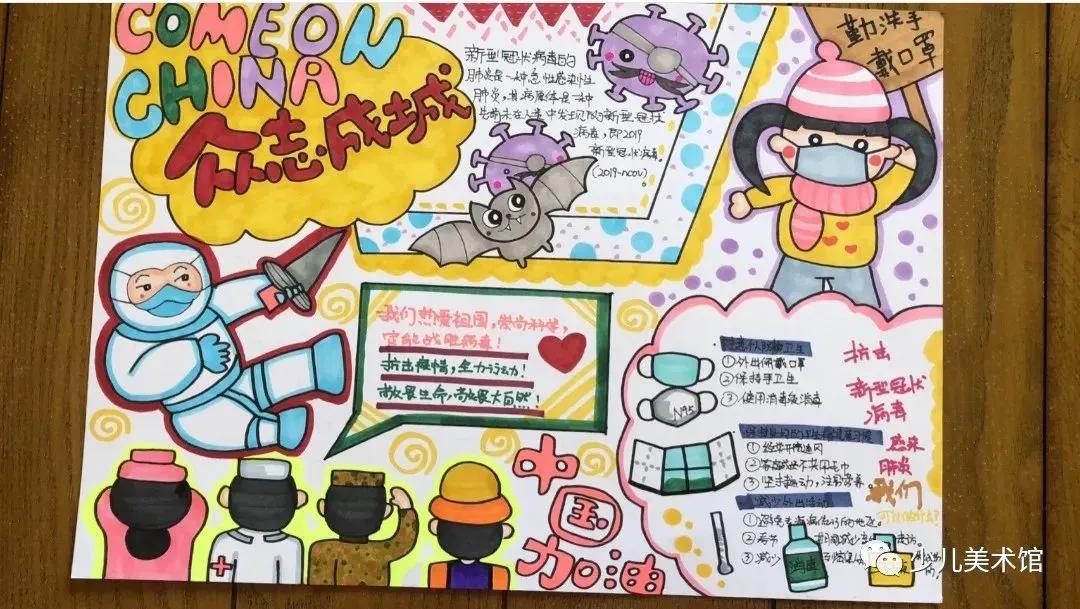 COME ON
CHINA
众志成城
新型冠状病毒的
肺炎是一种急性感染性
肺炎，其病原体是一种
先前未在人类中发现的新型冠状
病毒，即2019
新型冠状病毒。
(2019-ncov)
勤洗手
戴口罩
我们热爱祖国，崇尚科学，
定能战胜病毒！
抗击疫情，全力行动！
敬畏生命，敬畏大自然！
中国
加油
N95
个人防护卫生
①外出佩戴口罩
②保持手卫生
③使用消毒液消毒
保持良好的卫生
①经常开窗通风
②家庭成员不共用毛巾
③坚持运动，注意营养。
减少外出活动
①避免去疾病流行的地区。
②春节
③减少
消毒
抗击
新型冠状
病毒
感染
肺炎
我们
少儿美术馆